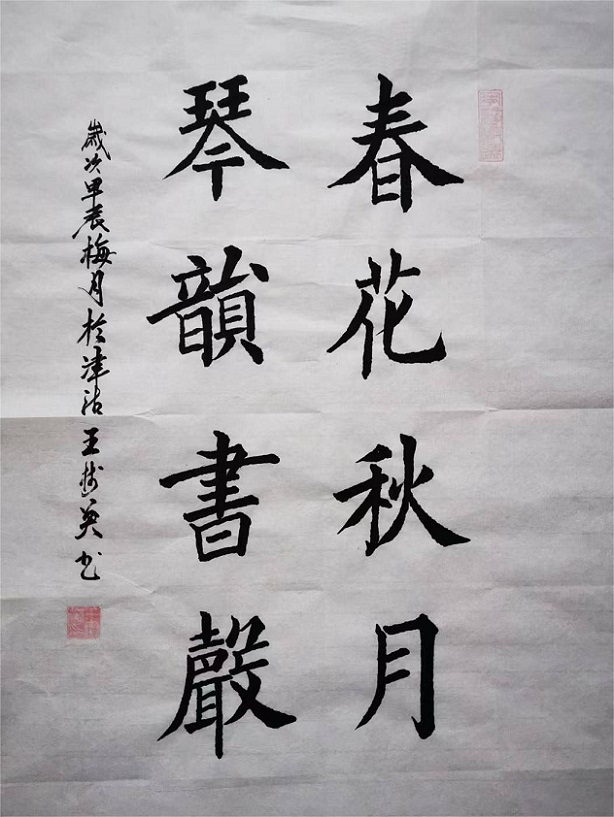 春花秋月
琴韻書聲
歲次甲辰梅月於津沽王樹英书